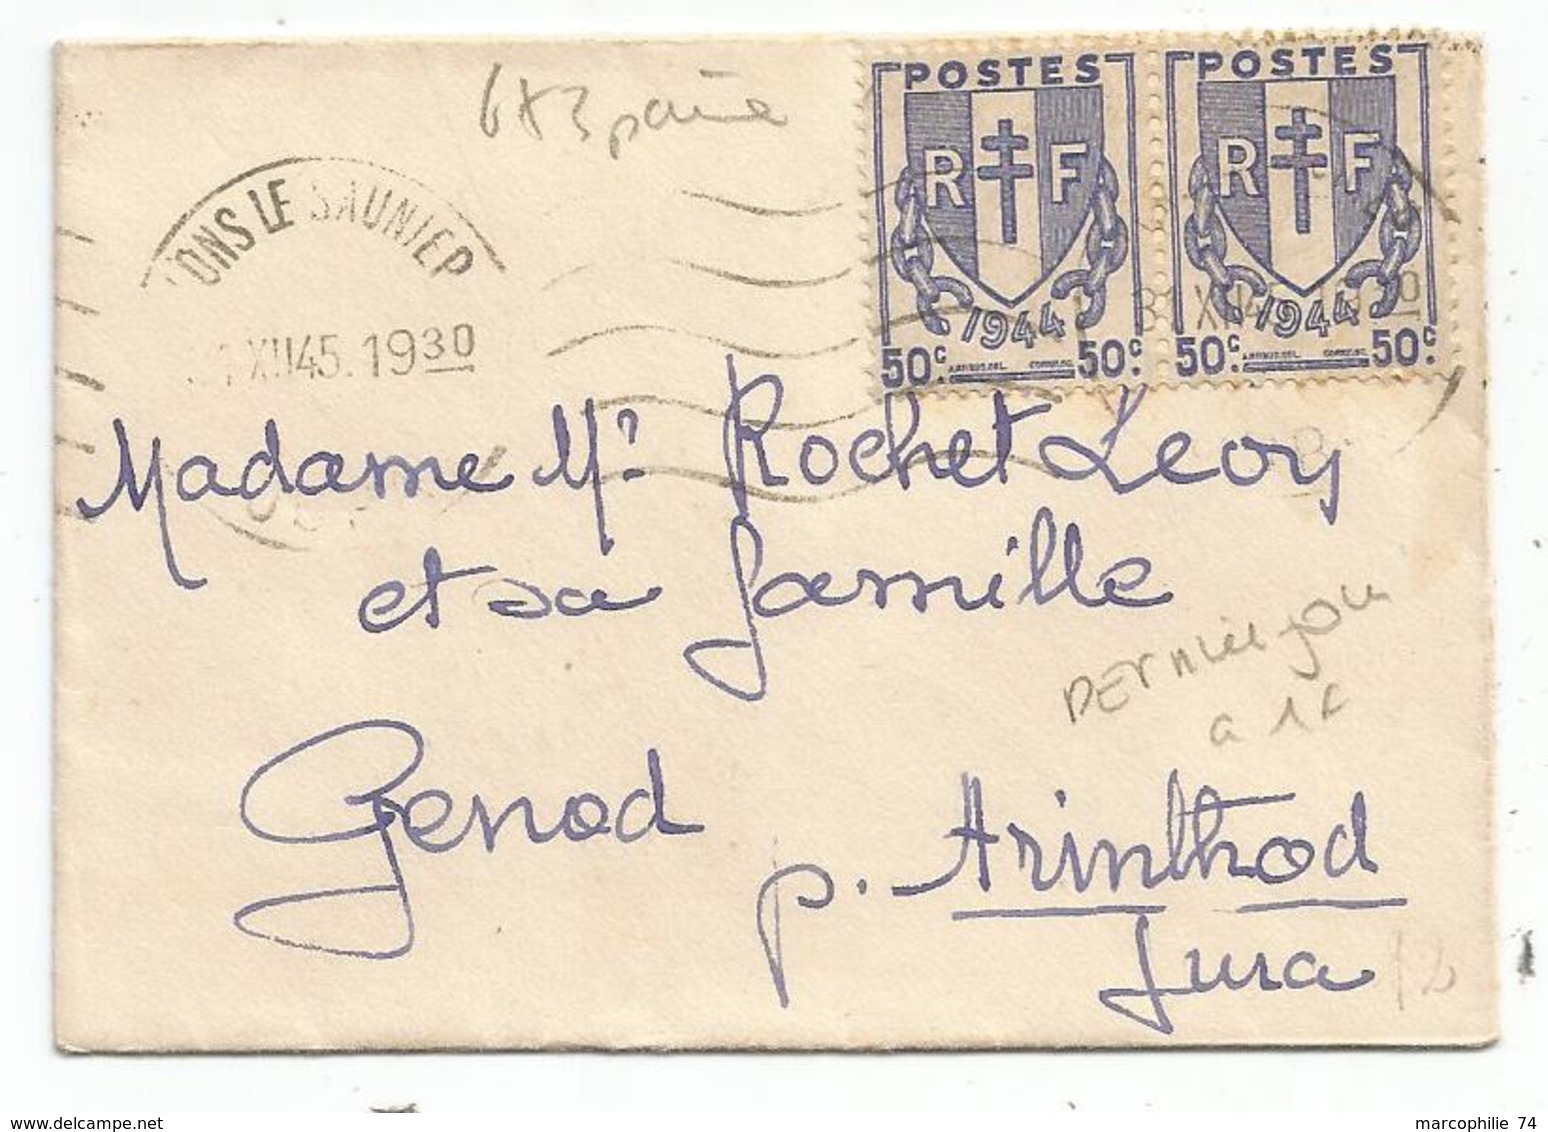 673 paire
POSTES POSTES
LONS LE SAUNIER
R F R F
1944 1944
31 XII 45. 19 30
31 XII 45 1930
50c. 50c. 50c. 50c.
Madame Mr Rochet Léon
et sa famille
DERnier jour
a 1F
Genod
p. Arinthod
Jura
12
marcophilie 74